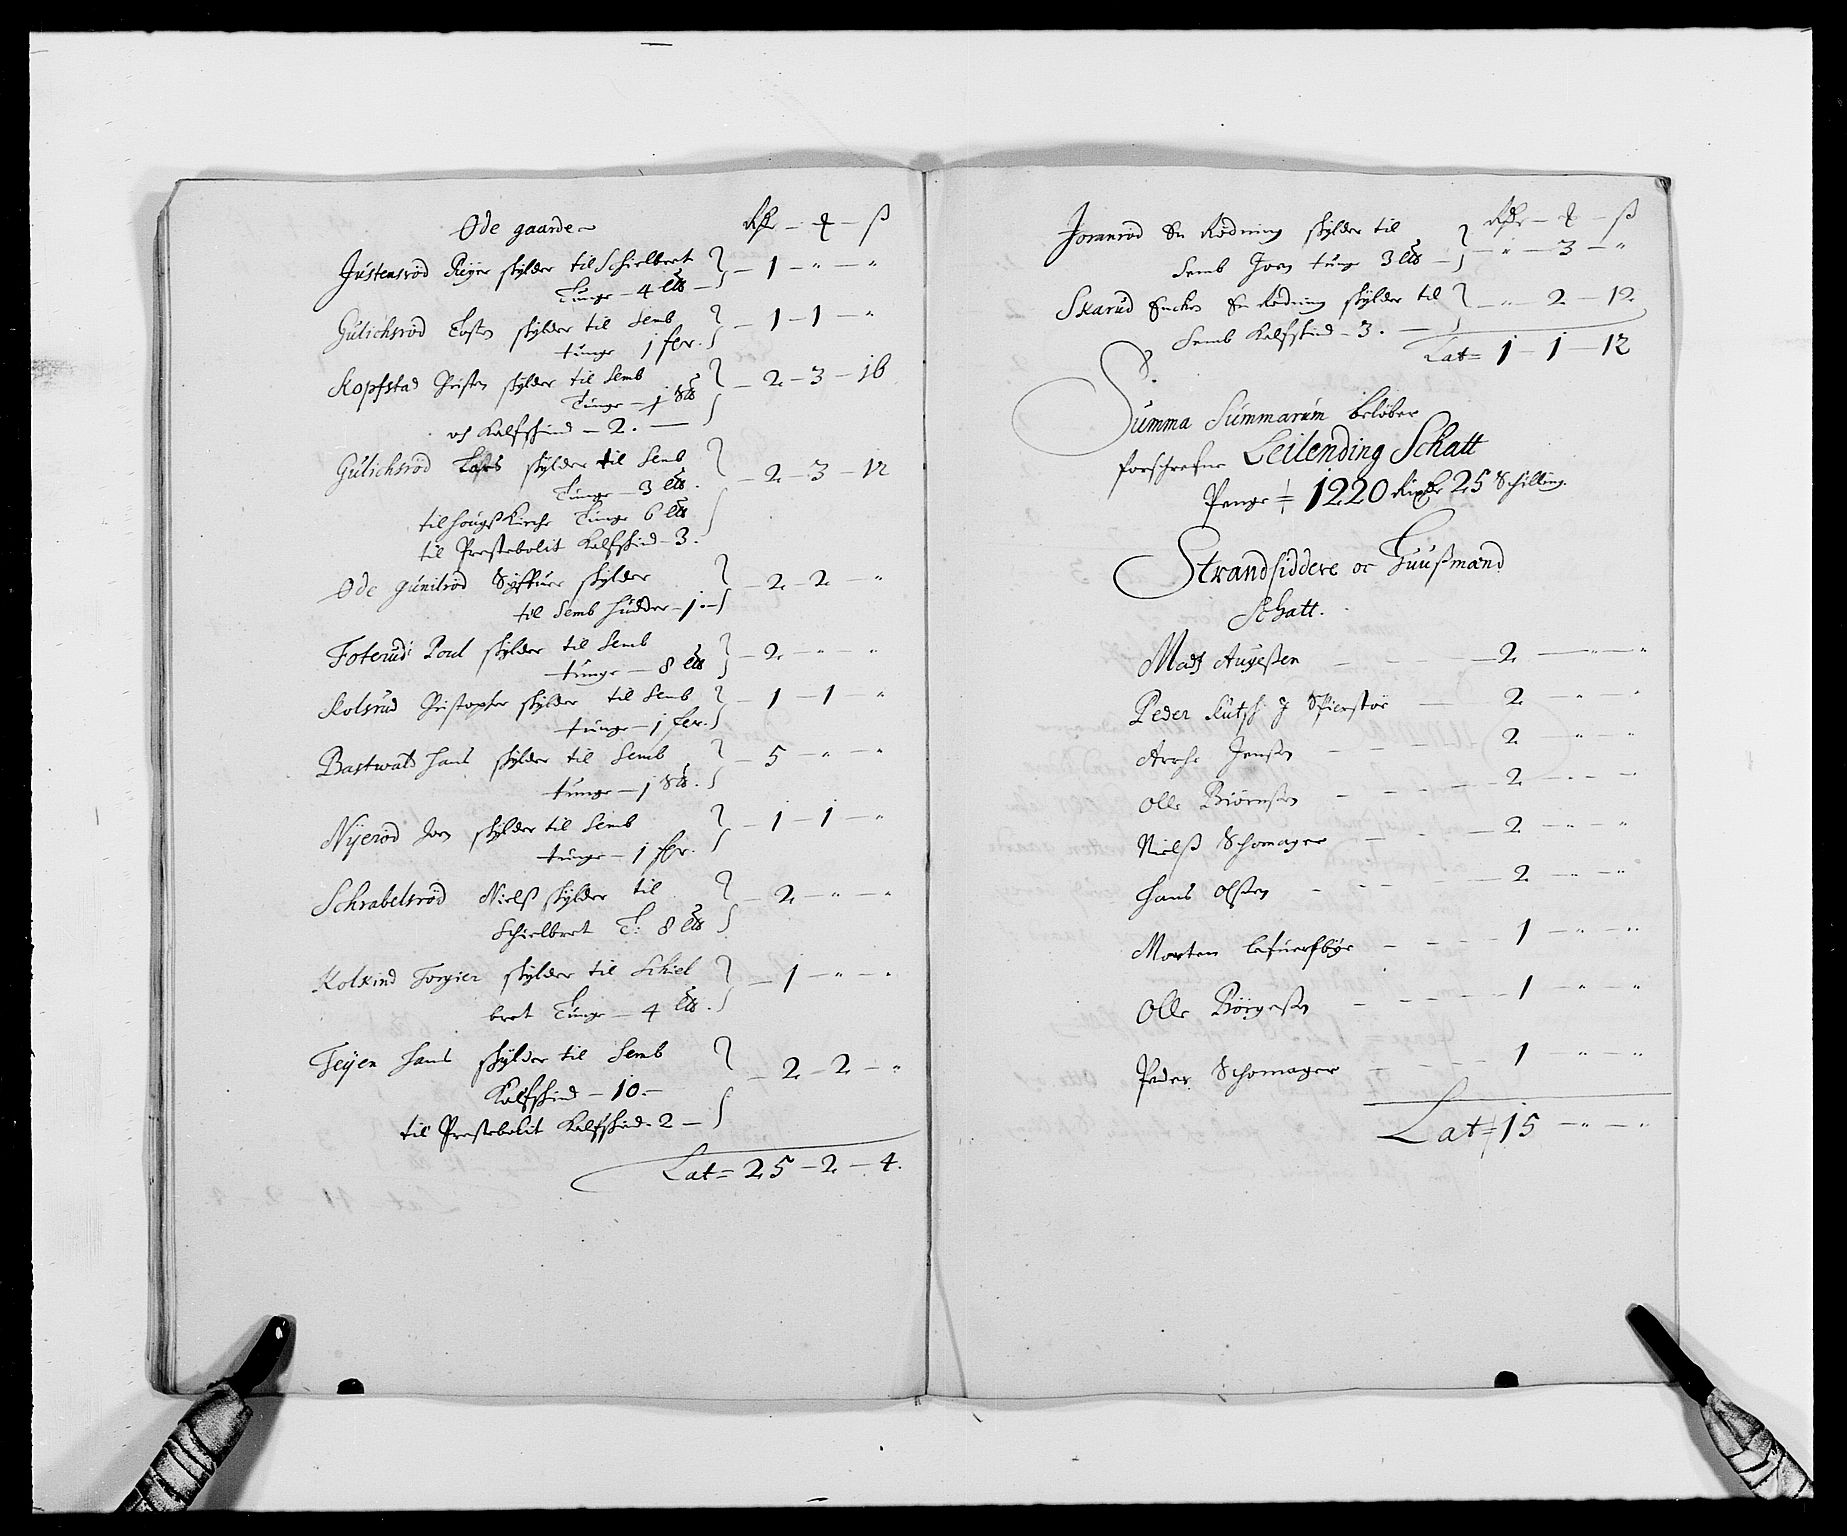 Øde gaarde Rdr - ℳ - ß
Justensrød Reyer skylder til Schielbret
Tunge - 4 Lb - 1 - " - "
Gulichsrød Tosten skylder til Semb
tunge 1 fkr. - 1 - 1 - "
Kopfstad Christen skylder til Semb
Tunge - 1 Slb - 2 - 3 - 16
och Kalfskind - 2.
Gulichsrød skylder til Semb
Tunge - 3 Lb. - 2 - 3 - 12
til Hougs Kirche Tunge 6 Lb
til Prestebolit Kalfskind - 3.
Øde gunilrød Syffuer skylder
til Semb Hudder - 1 - 2 - 2 - "
Foterud Poul skylder til Semb
tunge - 8 Lb - 2 - " - "
Kolsrud Christopher skylder til Semb
tunge - 1 fkr. - 1 - 1 - "
Bastwald Hans skylder til Semb
tunge - 1 Slb. - 5 - " - "
Nyerød Joen skylder til Semb
tunge - 1 fkr. - 1 - 1 - "
Schrabelsrød Nielß skylder til
Schielbret T: 8 Lb - 2 - " - "
Kolkind Torgier skylder til Schiel
bret Tunge - 4 Lb. - 1 - " - "
Feyen Hans skylder til Semb
Kalfskind - 10 - 2 - 2 - "
til Prestebolit Kalfskind - 2 -
Lat = 25 - 2 - 4.
Joranrød En Rødning skylder til Rdr - ℳ - ß
Semb Joen tunge 3 Lb - " - 3 - "
Skarud Encken En Rødning skylder til - " - 2 - 12
Semb Kalfskind - 3. -
Lat = 1 - 1 - 12
Summa Summarum beløber
forschrefne Leilending Schatt
Penge = 1220 Rixdr 25 Schilling.
Strandsiddere oc Huußmænd
Schatt.
Mads Augeßen - 2 - " - "
Peder - 2 - " - "
Jensen - 2 - " - "
Olle Biørnsen - 2 - " - "
Nielß Schomager - 2 - " - "
Hans Olsen - 2 - " - "
Morten - 1 - " - "
Olle Børgesen - 1 - " - "
Peder Schomager - 1 - " - "
Lat = 15 - " - "